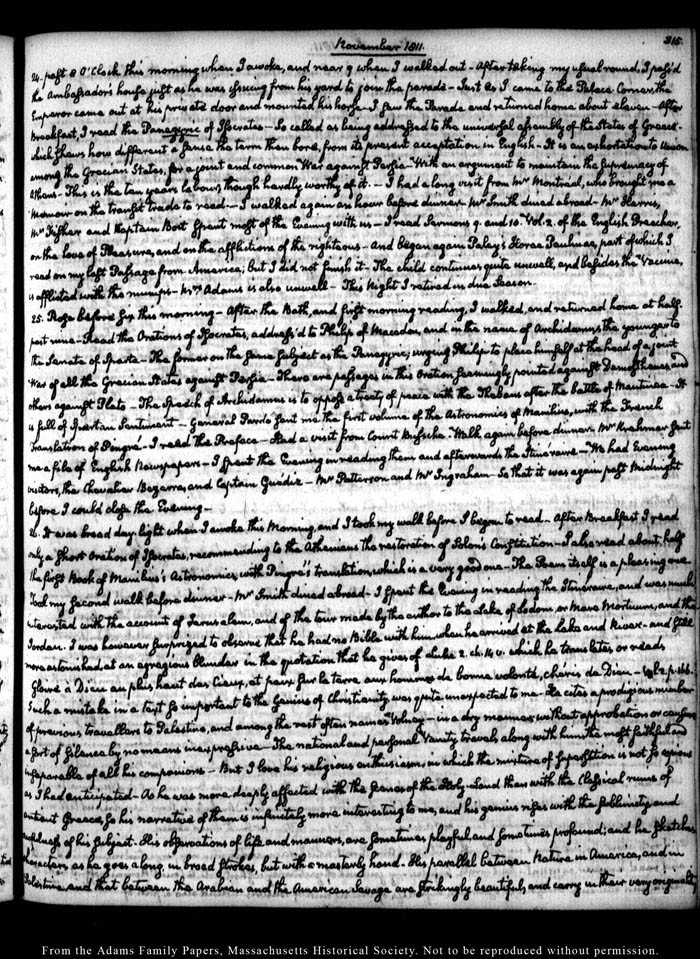 November 1811.
315.
24. past 8 O'Clock this morning when I awoke, and near 9 when I walked out - After taking my usual round, I pass'd
the Ambassador's house just as he was issuing from his yard to join the parade - Just as I came to the Palace Corner, the
Emperor came out at his private door and mounted his horse - I saw the Parade and returned home about eleven - After
breakfast, I read the Panegyric of Isocrates - So called as being addressed to the universal assembly of the States of Greece -
which shews how different a sense the term then bore, from its present acceptation in English - It is an exhortation to Union
among the Grecian States, for a joint and common War against Persia - With an argument to maintain the supremacy of
Athens - This is the ten years labour, though hardly worthy of it. - I had a long visit from Mr Montréal, who brought me a
Memoir on the transit trade to read. - I walked again an hour before dinner. Mr Smith dined abroad - Mr Harris,
Mr Fisher and Captain Bort spent most of the Evening with us - I read Sermons 9. and 10. Vol. 2. of the English Preacher,
on the love of Pleasure, and on the afflictions of the righteous - And began again Paley's Horae Paulinae, part of which I
read on my last Passage from America; but I did not finish it - The child continues quite unwell, and besides the Vaccine,
is afflicted with the mumps - Mrs Adams is also unwell - This Night I retired in due Season.
25. Rose before six this morning - After the Bath, and first morning reading, I walked, and returned home at half
past nine - Read the Orations of Isocrates, address'd to Philip of Macedon, and in the name of Archidamus the younger to
the Senate of Sparta - The former on the same subject as the Panegyric; urging Philip to place himself at the head of a joint
War of all the Grecian States against Persia - There are passages in this Oration seemingly pointed against Demosthenes, and
others against Plato - The Speech of Archidamus is to oppose a treaty of peace with the Thebans after the battle of Mantinea - It
is full of Spartan Sentiment - General Pardo sent me the first volume of the Astronomics of Manilius, with the French
Translation of Pingré - I read the Preface - Had a visit from Count Bussche - Walk again before dinner. Mr Krehmer sent
me a file of English Newspapers - I spent the Evening in reading them and afterwards the Itinéraire - We had Evening
visitors, the Chevalier Bezerra, and Captain Guedez - Mr Patterson and Mr Ingraham - So that it was again past Midnight
before I could close the Evening -
26. It was broad day light when I awoke this Morning, and I took my walk before I began to read. After Breakfast I read
only a short Oration of Isocrates, recommending to the Athenians the restoration of Solon's Constitution - I also read about half
the first Book of Manilius's Astronomics, with Pingré's translation, which is a very good one - The Poem itself is a pleasing one
Took my second walk before dinner - Mr Smith dined abroad - I spent the Evening in reading the Itinéraire, and was much
interested with the account of Jerusalem, and of the tour made by the author to the Lake of Sodom or Mare Mortuum, and the
Jordan. I was however surprized to observe that he had no Bible with him, when he arrived at the Lake and River - and still
more astonished, at an egregious blunder in the quotation that he gives of Luke 2. ch. 14 v. which he translates, or reads
Gloire à Dieu au plus haut des Cieux, et paix sur la terre aux hommes de bonne volonté, chéris de Dieu - Vol 2. p. 166.
Such a mistake in a text so important to the Genius of Christianity was quite unexpected to me - He cites a prodigious number
of previous travellers to Palestine, and among the rest often names Volney - in a dry manner without approbation or censure
a sort of Silence by no means inexpressive - The national and personal Vanity travels along with him the most faithful and
inseparable of all his companions - But I love his religious enthusiasm, in which the mixture of superstition is not so copious
as I had anticipated - As he was more deeply affected with the scenes of the Holy-Land than with the Classical ruins of
antient Greece, so his narrative of them is infinitely more interesting to me, and his genius rises with the sublimity and
holiness of his Subject - His observations of life and manners, are sometimes playful and sometimes profound; and he sketches
characters as he goes along, in broad strokes, but with a masterly hand. His parallel between Nature in America, and in
Palestine, and that between the Arabian and the American Savage are strikingly beautiful, and carry in their very originality
From the Adams Family Papers, Massachusetts Historical Society. Not to be reproduced without permission.